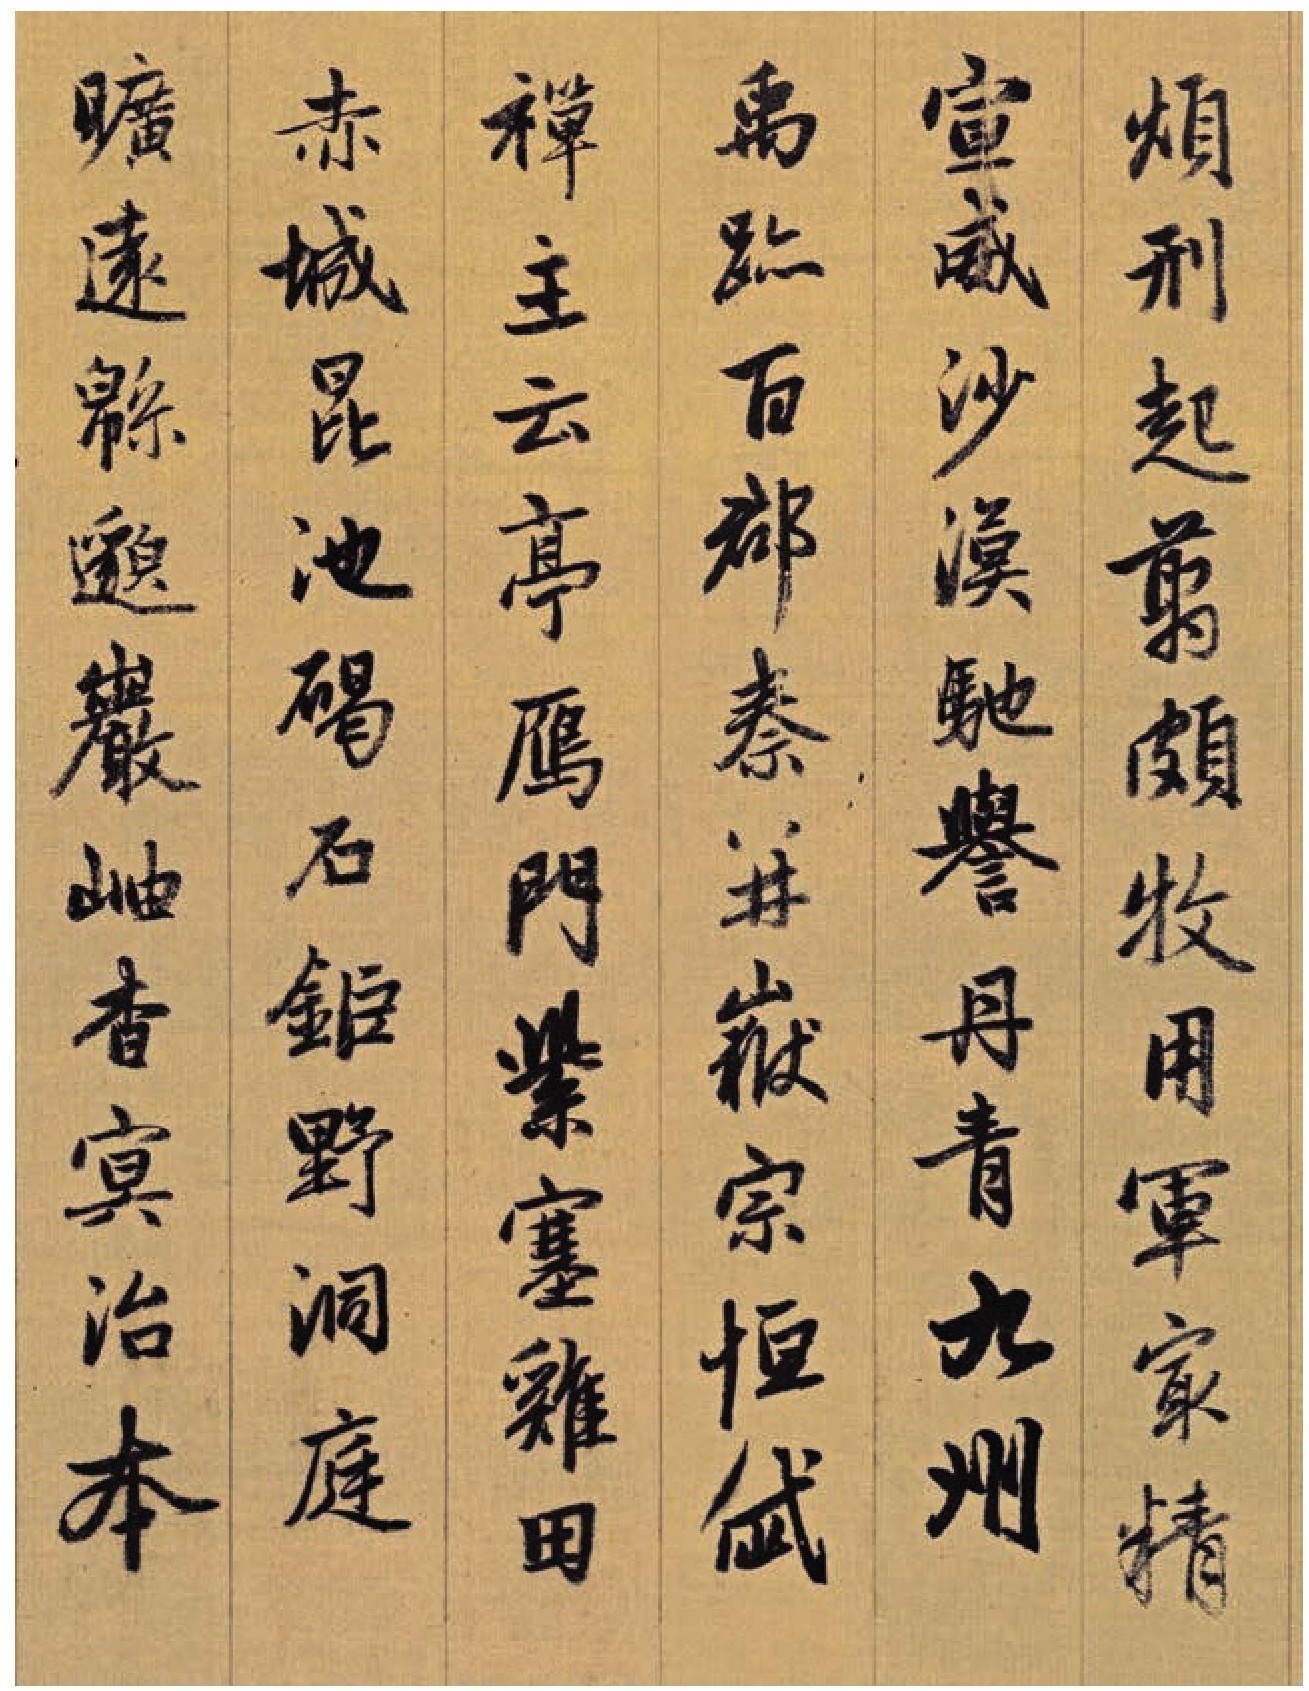 煩刑起翦頗牧用軍㝡精
宣威沙漠馳譽丹青九州
禹跡百郡秦并嶽宗恒岱
禪主云亭鴈門紫塞雞田
赤城昆池碣石鉅野洞庭
曠遠緜邈巖岫杳冥治本